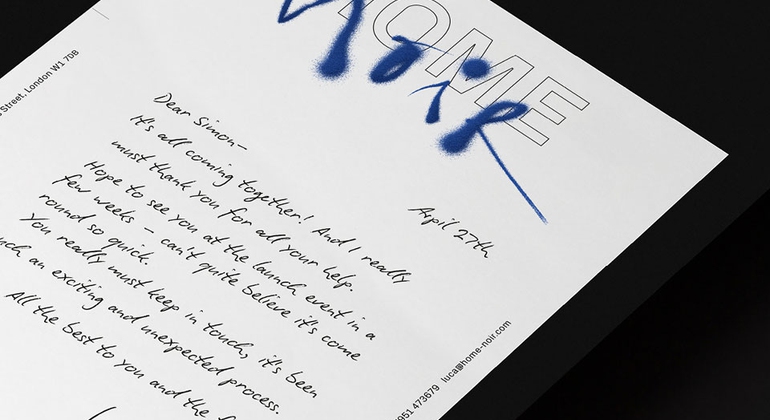 HOME
NOIR
Street, London W1 7DB
April 27th
Dear Simon–
It's all coming together! And I really
must thank you for all your help.
Hope to see you at the launch event in a
few weeks – can't quite believe it's come
round so quick.
You really must keep in touch, it's been
an exciting and unexpected process.
All the best to you and the
951 473679 luca@home-noir.com